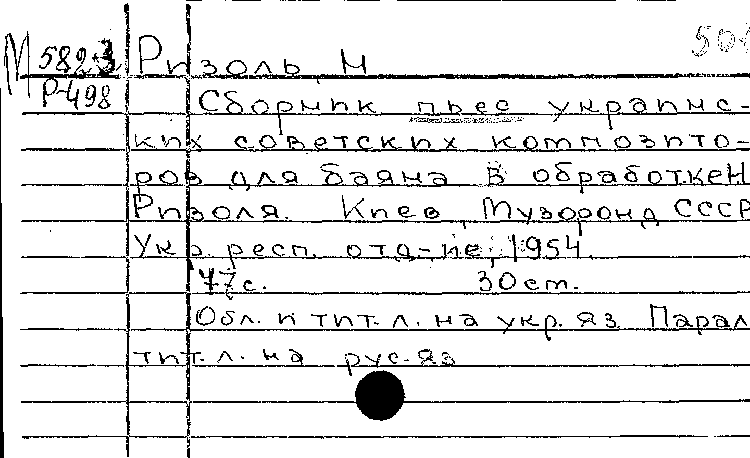 М 582.3 Ризоль, Н
Р-498
Сборник пьес украинс-
ких советских композито-
ров для баяна в обработке Н
Ризоля. Киев, Музфонд СССР
Укр респ. отд-ие, 1954.
77 с. 30 cm.
Обл. и тит. л. на укр. яз Парал
тит. л. на рус. яз